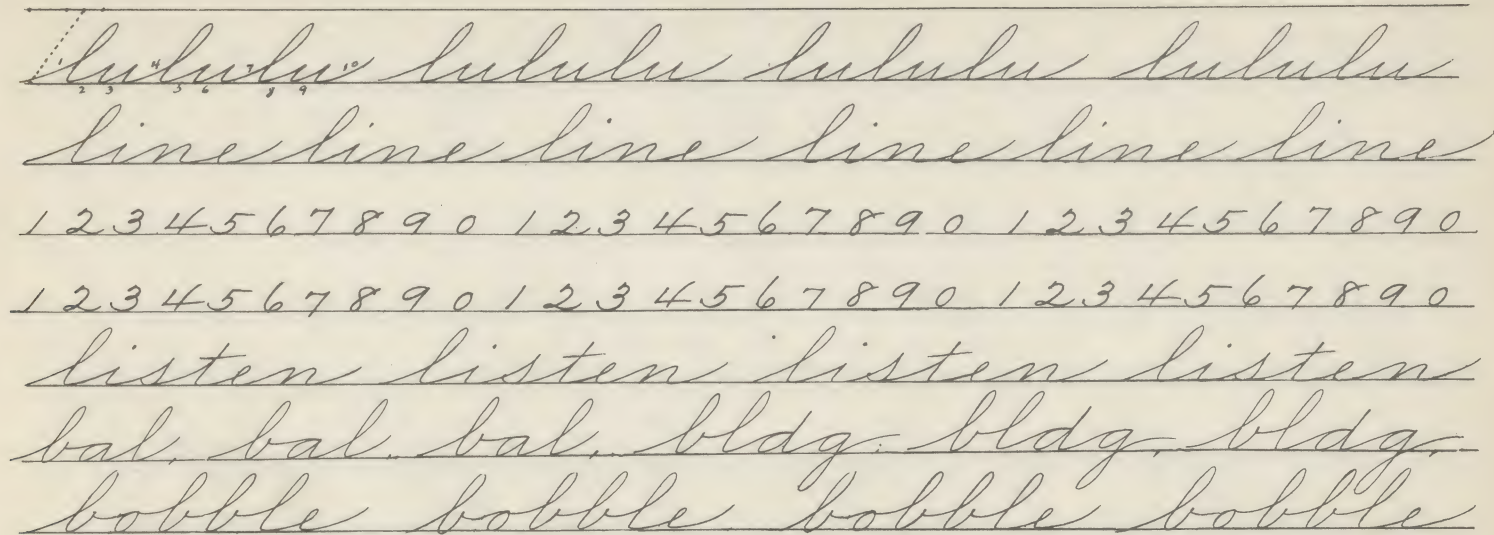 1 4 7 10
lululu lululu lululu lululu
2 3 5 6 8 9
line line line line line line
1 2 3 4 5 6 7 8 9 0 1 2 3 4 5 6 7 8 9 0 1 2 3 4 5 6 7 8 9 0
1 2 3 4 5 6 7 8 9 0 1 2 3 4 5 6 7 8 9 0 1 2 3 4 5 6 7 8 9 0
listen listen listen listen
bal. bal. bal. bldg. bldg. bldg.
bobble bobble bobble bobble